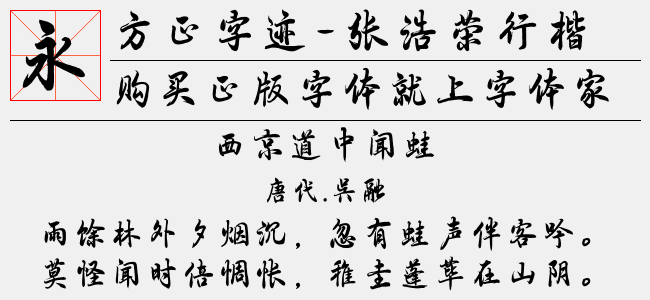 永
方正字迹-张浩荣行楷
购买正版字体就上字体家
西京道中闻蛙
唐代.吴融
雨馀林外夕烟沉，忽有蛙声伴客吟。
莫怪闻时倍惆怅，稚圭蓬荜在山阴。